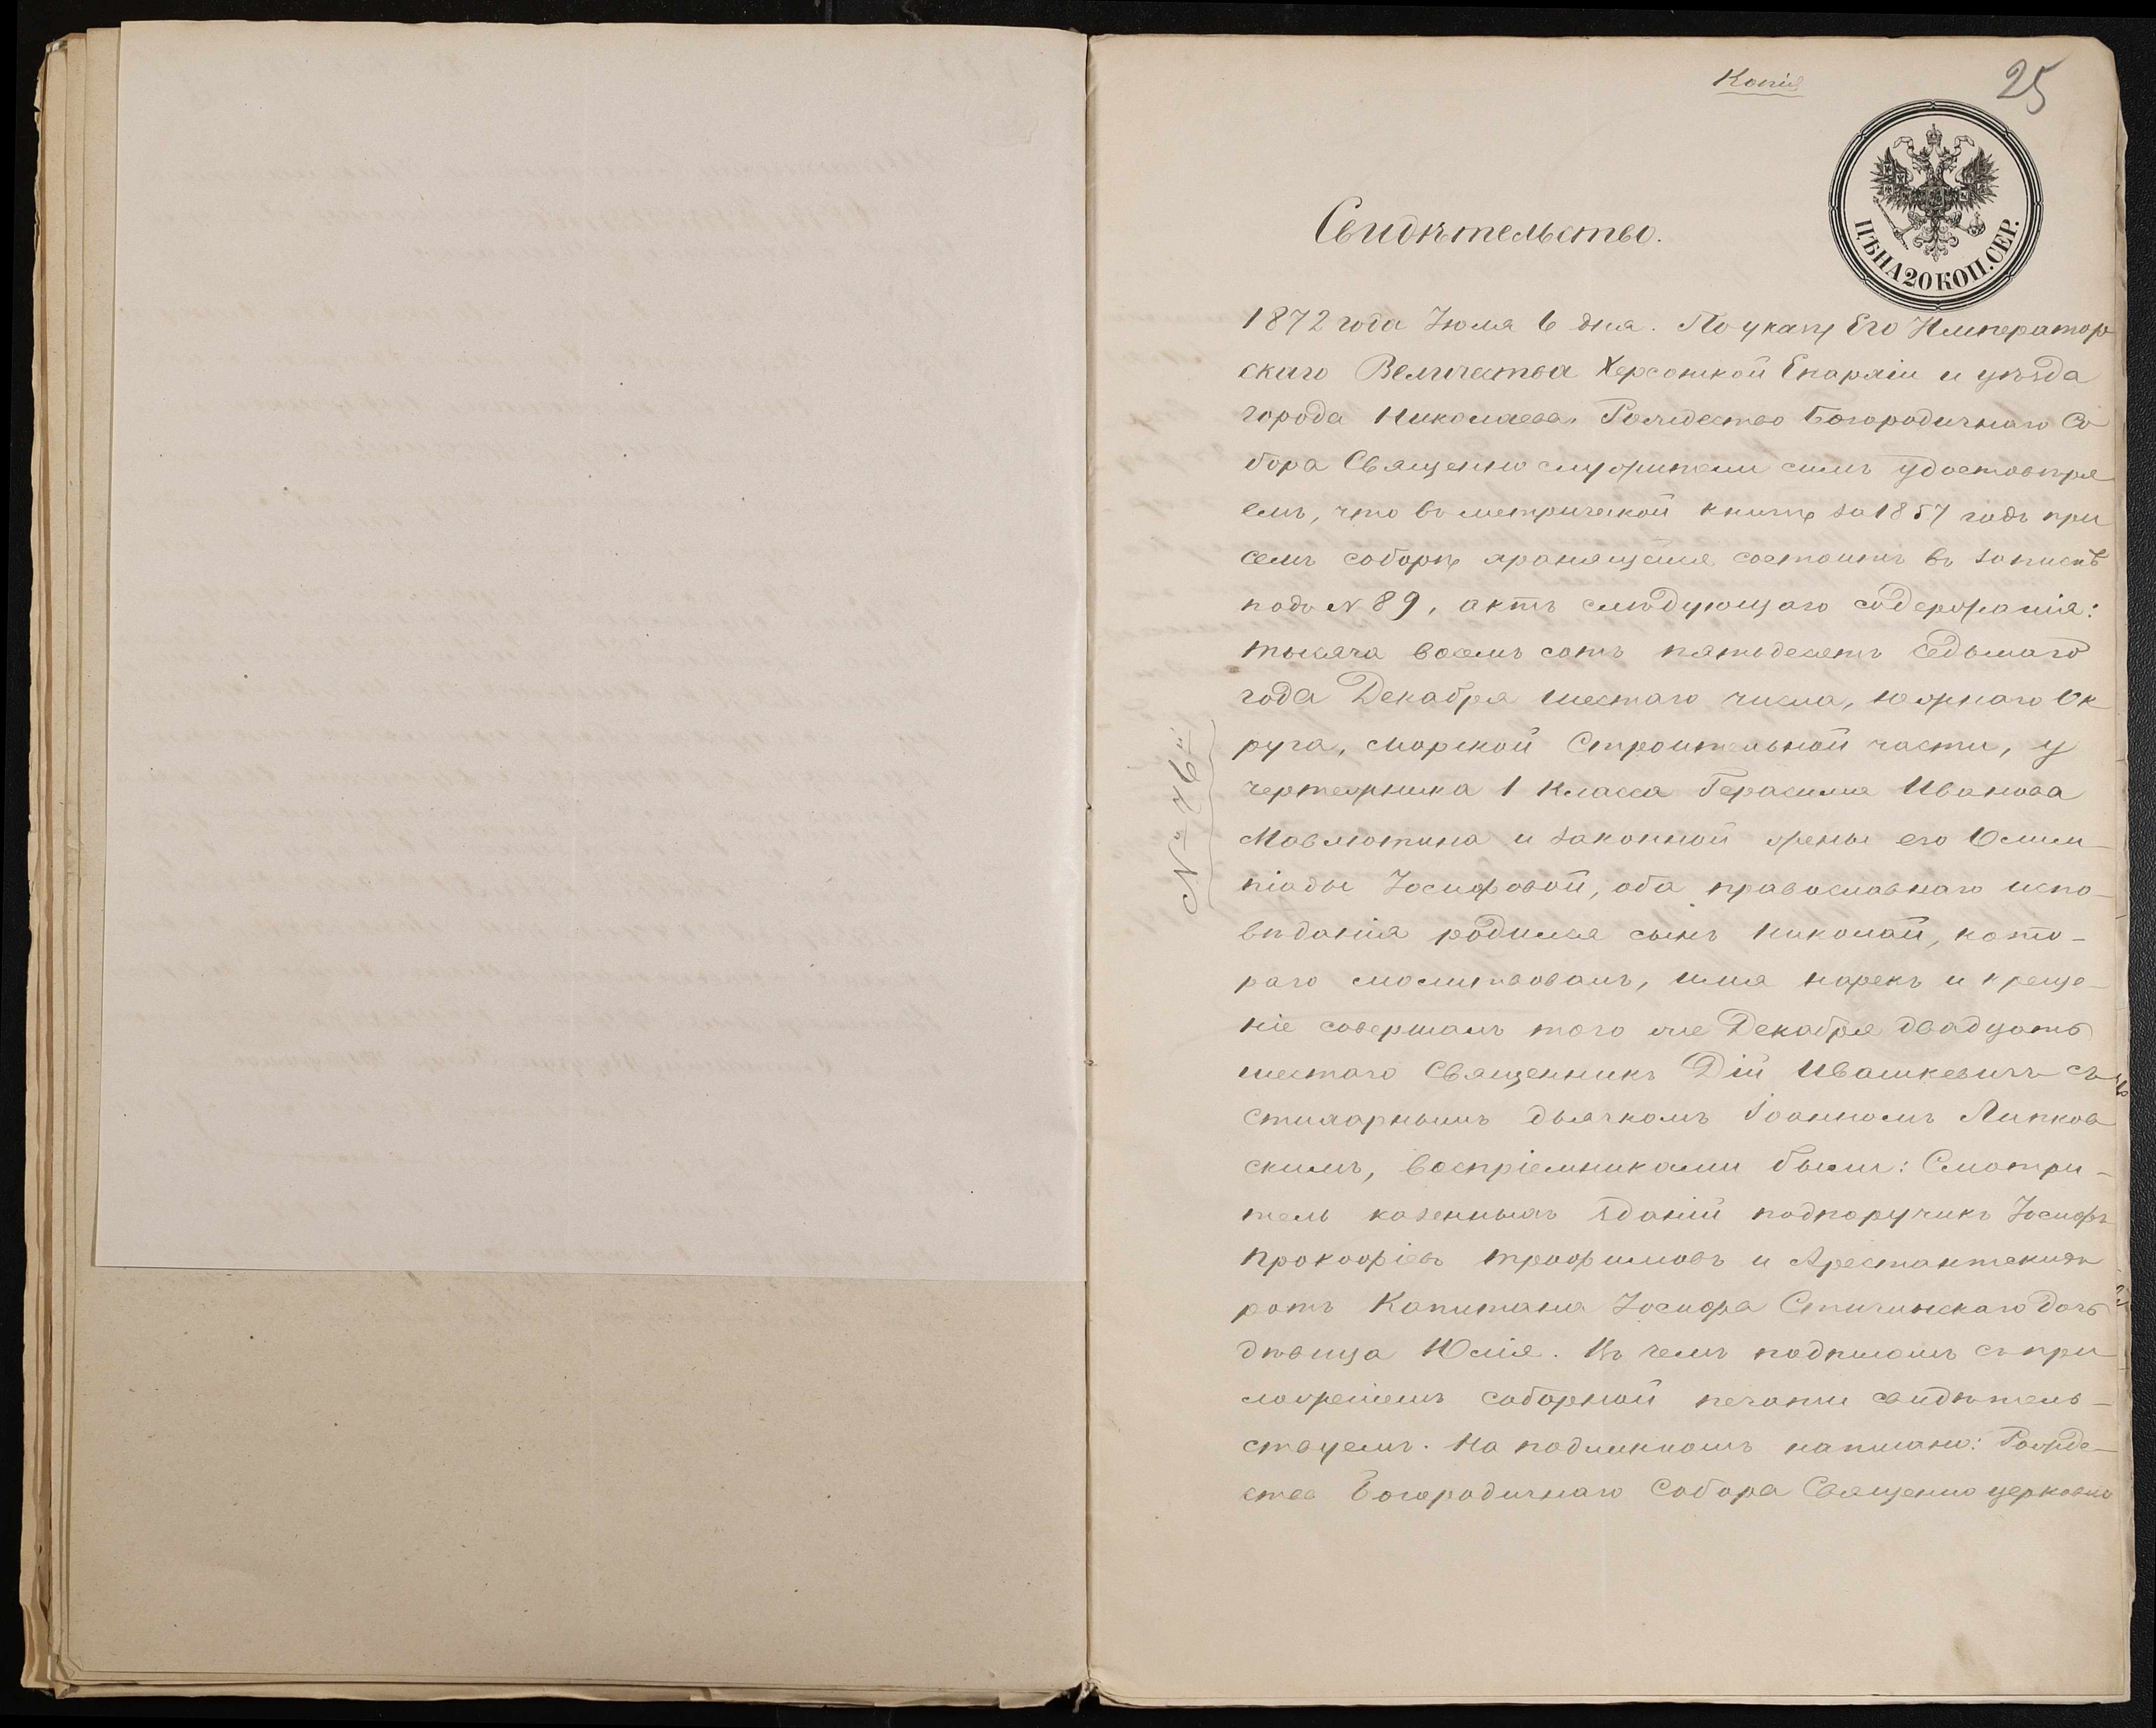 Копія
25
ЦѢНА 20 КОП. СЕР.
Свидѣтельство.
1872 года Іюля 6 дня. По указу Его Император
скаго Величества Херсонской Епархіи и уѣзда
города Николаева, Рождество Богородичнаго Со
бора Священно служители симъ удостовѣря
емъ, что въ метрической книгѣ за 1857 годъ при
семъ соборѣ хранящейся состоитъ въ запискѣ
подъ № 89, актъ слѣдующаго содержанія:
тысяча восемь сотъ пятьдесятъ седьмаго
года Декабря шестаго числа, южнаго Ок
руга, Морской Строительной части, у
чертежника 1 класса Герасима Иванова
Мавлютина и законной жены его Олим-
піады Іосифовой, оба православнаго испо-
вѣданія родился сынъ Николай, кото-
раго молитвовалъ, имя нарекъ и креще-
ніе совершалъ того же Декабря двадцать
шестаго Священникъ Дій Ивашкевичъ съ
стихарнымъ дьячкомъ Іоанномъ Липков
скимъ, воспріемниками были: Смотри-
тель казенныхъ зданій подпоручикъ Іосифъ
Прокофіевъ Трофимовъ и Арестантскихъ
ротъ Капитана Іосифа Стичинскаго дочь
дѣвица Юлія. Въ чемъ подписомъ съ при
ложеніемъ соборной печати свидѣтель-
ствуемъ. На подлинномъ написано: Рожде-
ство Богородичнаго Собора Священно церковно